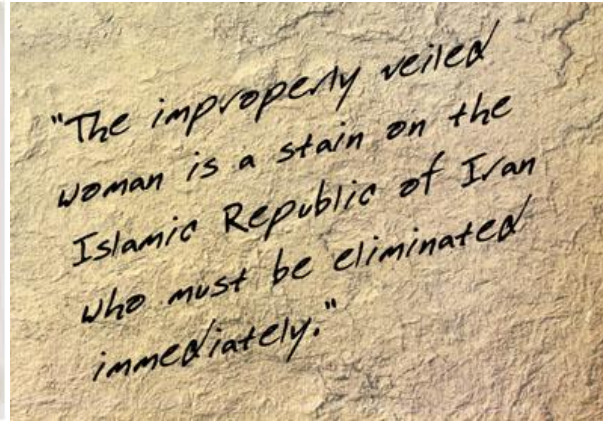 "The improperly veiled
woman is a stain on the
Islamic Republic of Iran
who must be eliminated
immediately."